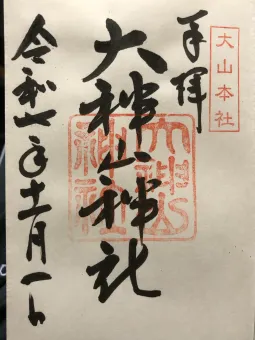 大山本社
奉拝
大神山神社
大神山
神社
令和七年十一月一日